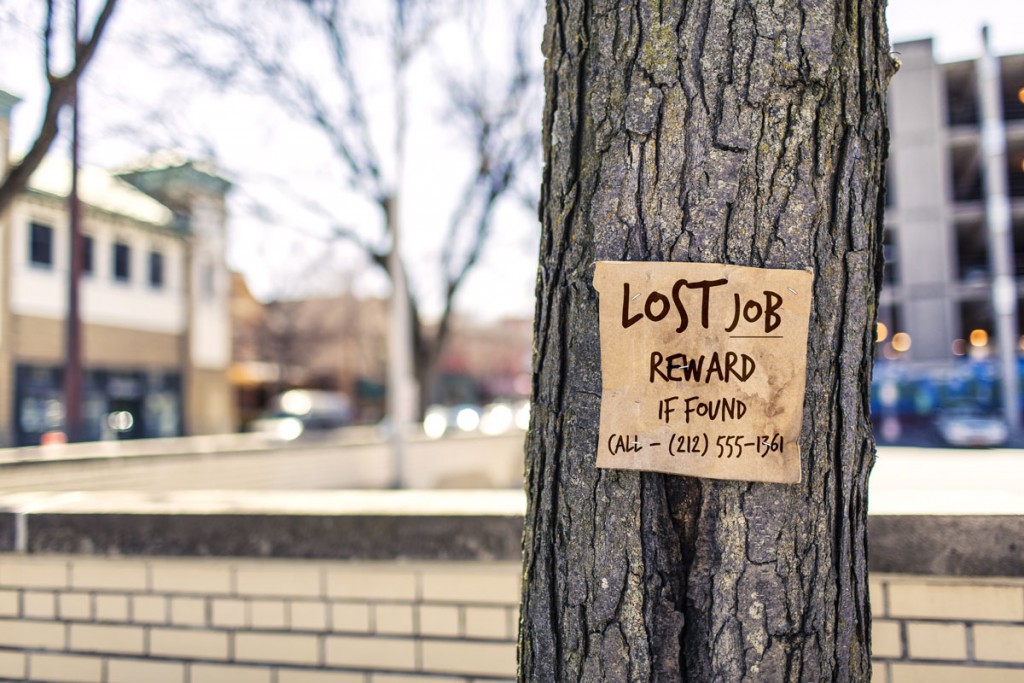 LOST JOB
REWARD
IF FOUND
CALL - (212) 555-1361